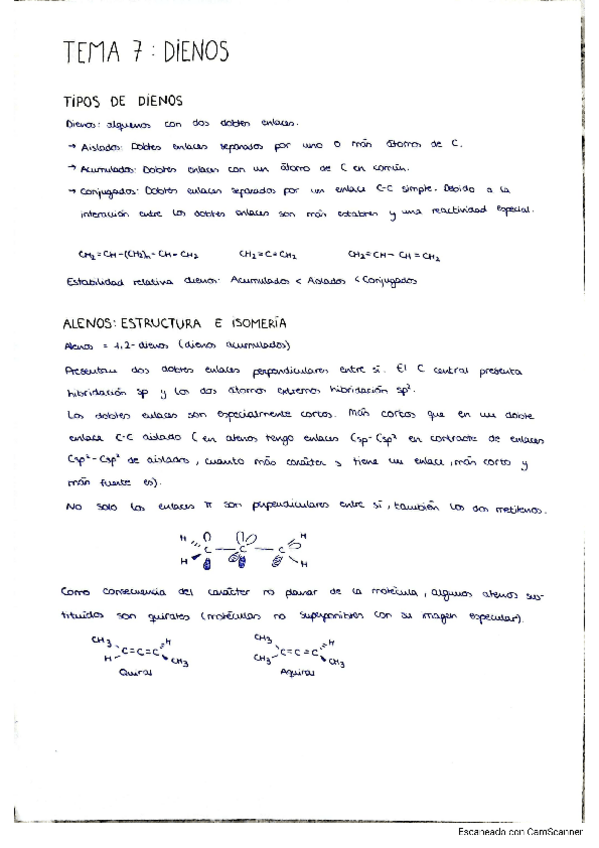 TEMA 7: DIENOS
TIPOS DE DIENOS
Dienos: alquenos con dos dobles enlaces.
→ Aislados: Dobles enlaces separados por uno o más átomos de C.
→ Acumulados: Dobles enlaces con un átomo de C en común.
→ Conjugados: Dobles enlaces separados por un enlace C-C simple. Debido a la
interacción entre los dobles enlaces son más estables y una reactividad especial.
CH₂=CH-(CH₂)n-CH=CH₂ CH₂=C=CH₂ CH₂=CH-CH=CH₂
Estabilidad relativa dienos: Acumulados < Aislados < Conjugados
ALENOS: ESTRUCTURA E ISOMERÍA
Alenos = 1,2-dienos (dienos acumulados)
Presentan dos dobles enlaces perpendiculares entre sí. El C central presenta
hibridación sp y los dos átomos extremos hibridación sp².
Los dobles enlaces son especialmente cortos. Más cortos que en un doble
enlace C-C aislado (en alenos tengo enlaces Csp-Csp² en contraste de enlaces
Csp²-Csp² de aislados, cuanto más carácter s tiene un enlace, más corto y
más fuerte es).
No solo los enlaces π son perpendiculares entre sí, también los dos metilenos.
H H
C - C - C
H H
Como consecuencia del carácter no planar de la molécula, algunos alenos sus-
tituidos son quirales (moléculas no superponibles con su imagen especular).
CH₃ H CH₃ H
C=C=C C=C=C
H CH₃ CH₃ CH₃
Quiral Aquiral
Escaneado con CamScanner